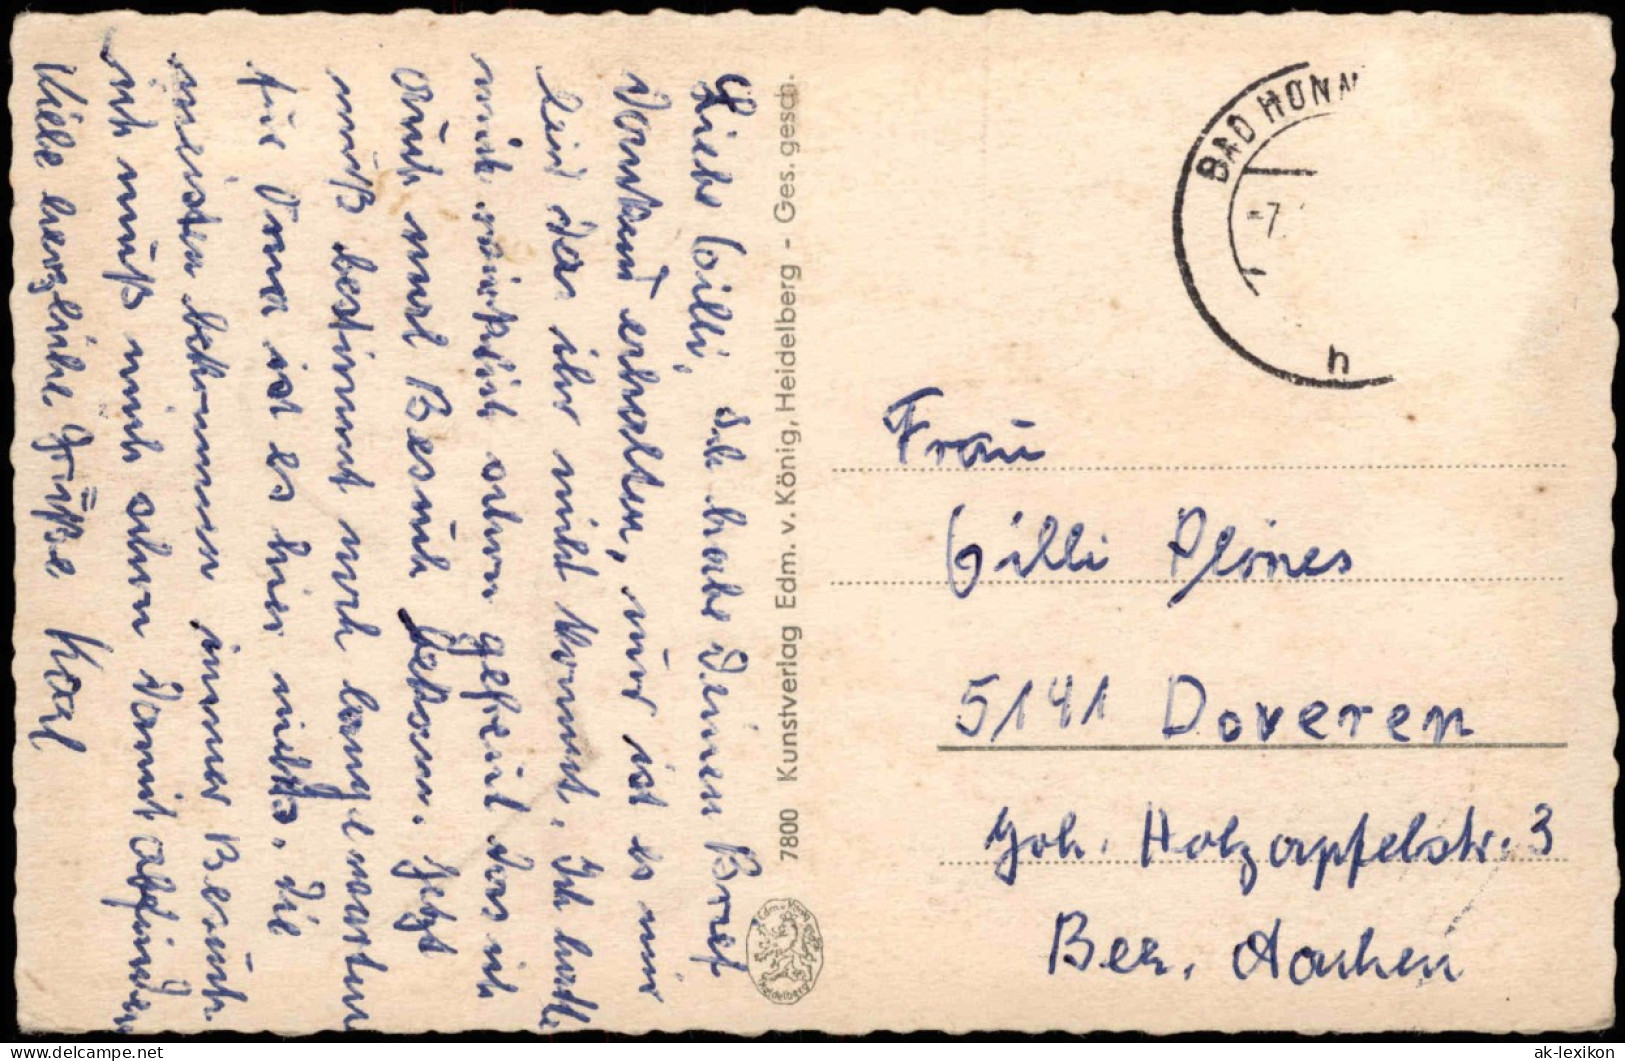 Liebe Cilli, Ich habe Deinen Brief
dankend erhalten, nur ist es mir
leid das ihr nicht kommt. Ich hatte
mich wirklich schon gefreut das ich
auch mal Besuch bekomm. Jetzt
muß bestimmt noch lange warten
für Oma ist es hier nichts. Die
meisten bekommen immer Besuch
ich muß mich schon damit abfinden
Viele herzliche Grüße Karl
7800 Kunstverlag Edm. v. König, Heidelberg - Ges. gesch.
Edm. v. König
Heidelberg
BAD HONN
-7.
h
Frau
Cilli Plönes
5141 Doveren
Joh. Holzapfelstr. 3
Bez. Aachen
ak-lexikon
delcampe.net